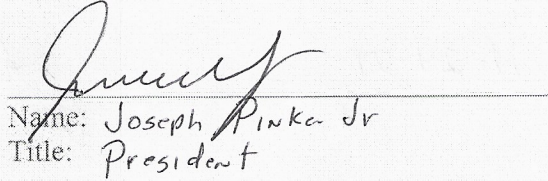 Name: Joseph Pinka Jr
Title: President